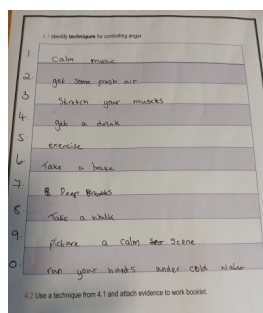 4.1 Identify techniques for controlling anger
1. Calm music
2. get some fresh air
3 Stretch your muscles
4. get a drink
5. exercise
6. Take a brake
7. Deep Breaths
8. Take a walk
9. picture a calm scene
0. run your hands under cold water
4.2 Use a technique from 4.1 and attach evidence to work booklet.